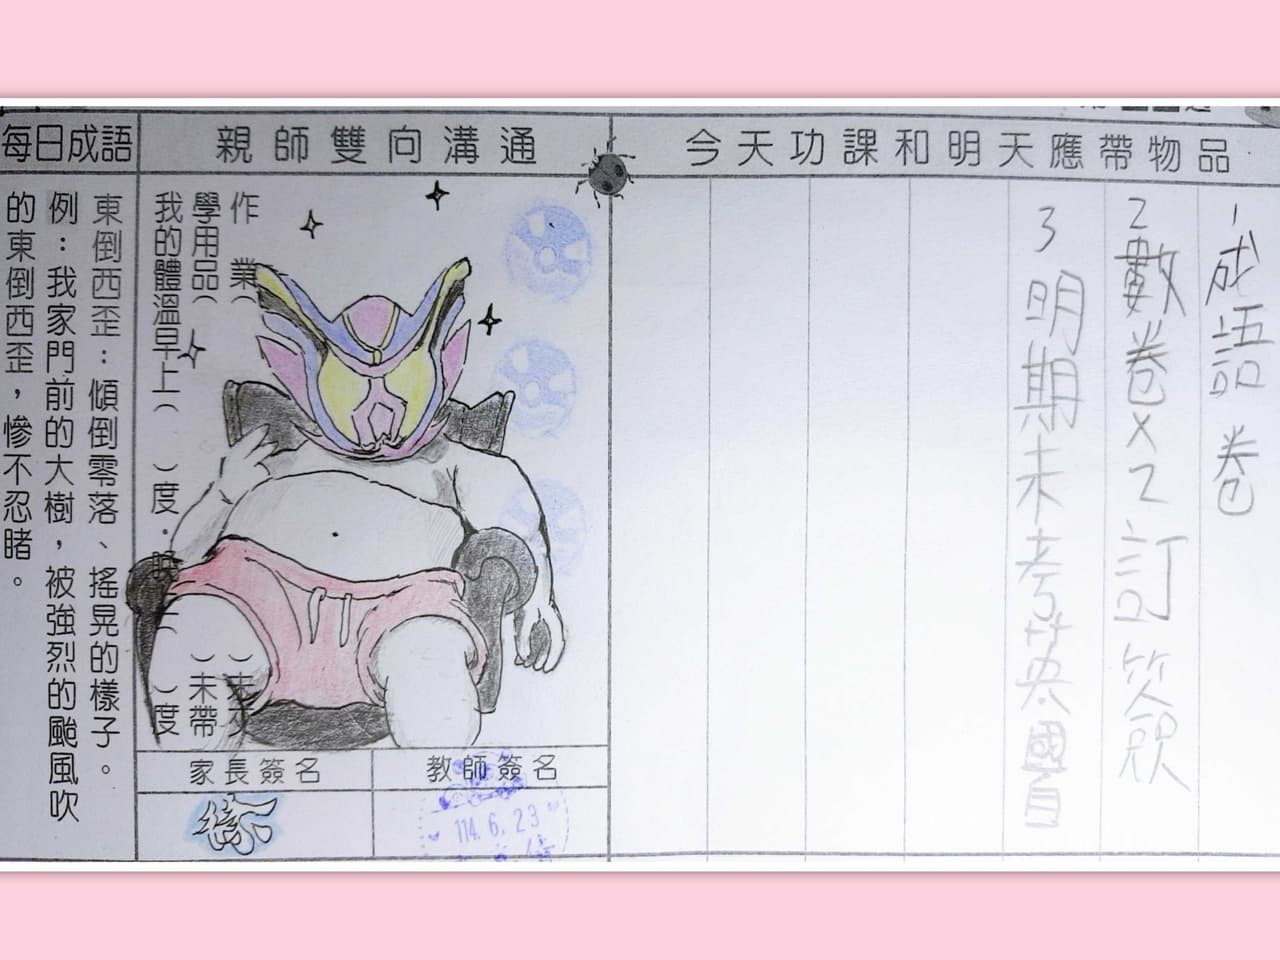 今天功課和明天應帶物品
1成語卷
2數卷x2訂簽
3明期末考英國習
親師雙向溝通
作業(
)未交
學用品(
)未帶
我的體溫早上( )度·晚上( )度
家長簽名
教師簽名
徐
114.6.23
每日成語
東倒西歪:傾倒零落、搖晃的樣子。
例:我家門前的大樹,被強烈的颱風吹
的東倒西歪,慘不忍睹。